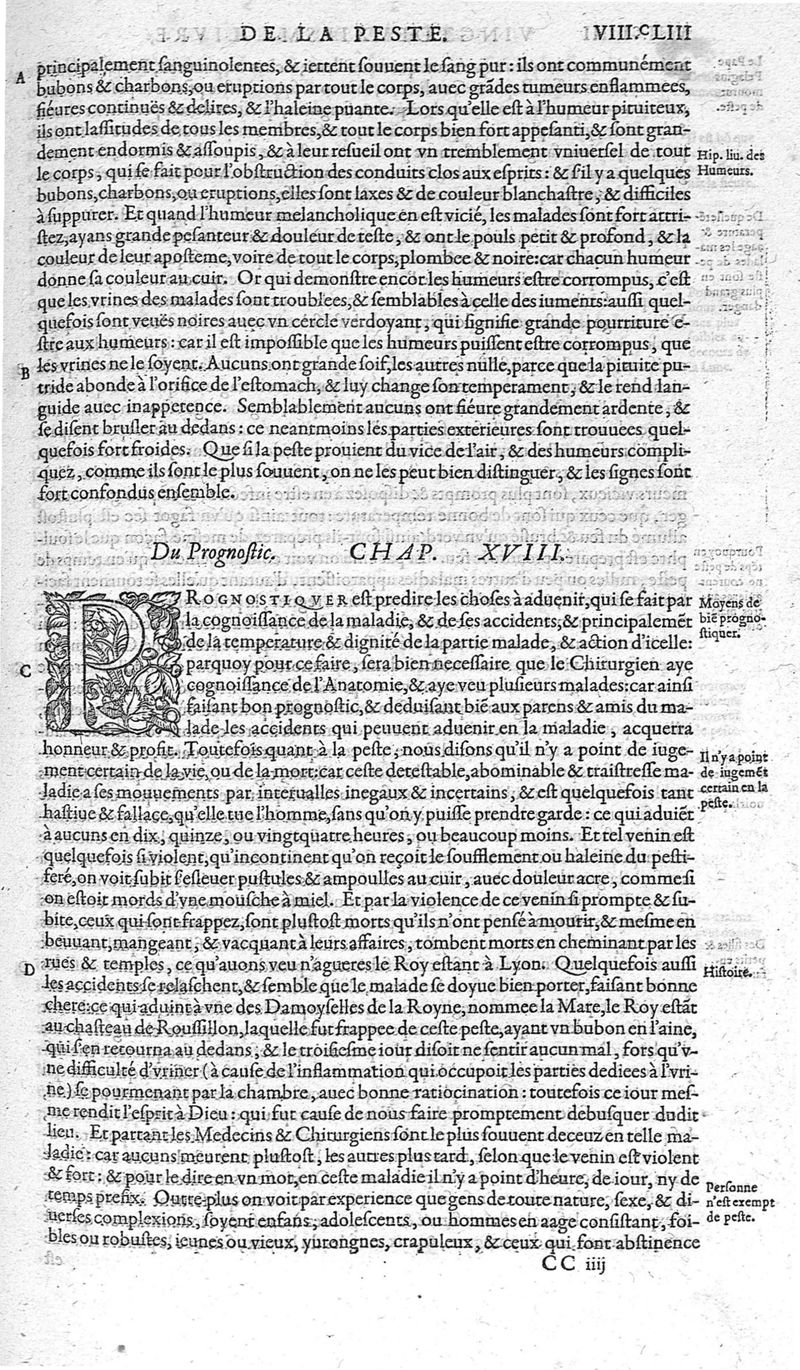 DE LA PESTE. VIII.CLIII
A
principalement sanguinolentes, & iettent souuent le sang pur : ils ont communément
bubons & charbons, ou eruptions par tout le corps, auec grãdes tumeurs enflammees,
fiéures continuës & delires, & l'haleine puante. Lors qu'elle est à l'humeur pituiteux,
ils ont lassitudes de tous les membres, & tout le corps bien fort appesanti, & sont gran-
dement endormis & assoupis, & à leur resueil ont vn tremblement vniuersel de tout
Hip. liu. des
Humeurs.
le corps, qui se fait pour l'obstruction des conduits clos aux esprits : & s'il y a quelques
bubons, charbons, ou eruptions, elles sont laxes & de couleur blanchastre, & difficiles
à suppurer. Et quand l'humeur melancholique en est vicié, les malades sont fort attri-
stez, ayans grande pesanteur & douleur de teste, & ont le pouls petit & profond, & la
couleur de leur aposteme, voire de tout le corps, plombee & noire: car chacun humeur
donne sa couleur au cuir. Or qui demonstre encor les humeurs estre corrompus, c'est
que les vrines des malades sont troublees, & semblables à celle des iuments: aussi quel-
quefois sont veuës noires auec vn cercle verdoyant, qui signifie grande pourriture e-
stre aux humeurs : car il est impossible que les humeurs puissent estre corrompus, que
B
les vrines ne le soyent. Aucuns ont grande soif, les autres nulle, parce que la pituite pu-
tride abonde à l'orifice de l'estomach, & luy change son temperament, & le rend lan-
guide auec inappetence. Semblablement aucuns ont fiéure grandement ardente, &
se disent brusler au dedans : ce neantmoins les parties exterieures sont trouuees quel-
quefois fort froides. Que si la peste prouient du vice de l'air, & des humeurs compli-
quez, comme ils sont le plus souuent, on ne les peut bien distinguer, & les signes sont
fort confondus ensemble.
Du Prognostic. CHAP. XVIII.
PROGNOSTIQVER est predire les choses à aduenir, qui se fait par
Moyens de
biẽ progno-
stiquer.
la cognoissance de la maladie, & de ses accidents, & principalemẽt
de la temperature & dignité de la partie malade, & action d'icelle:
C
parquoy pour ce faire, sera bien necessaire que le Chirurgien aye
cognoissance de l'Anatomie, & aye veu plusieurs malades: car ainsi
faisant bon prognostic, & deduisant biẽ aux parens & amis du ma-
lade les accidents qui peuuent aduenir en la maladie, acquerra
honneur & profit. Toutefois quant à la peste, nous disons qu'il n'y a point de iuge-
Il n'y a point
de iugemẽt
certain en la
peste.
ment certain de la vie, ou de la mort: car ceste detestable, abominable & traistresse ma-
ladie a ses mouuements par interualles inegaux & incertains, & est quelquefois tant
hastiue & fallace, qu'elle tue l'homme, sans qu'on y puisse prendre garde : ce qui aduiẽt
à aucuns en dix, quinze, ou vingtquatre heures, ou beaucoup moins. Et tel venin est
quelquefois si violent, qu'incontinent qu'on reçoit le soufflement ou haleine du pesti-
feré, on voit subit s'esleuer pustules & ampoulles au cuir, auec douleur acre, comme si
on estoit mords d'vne mousche à miel. Et par la violence de ce venin si prompte & su-
bite, ceux qui sont frappez, sont plustost morts qu'ils n'ont pensé à mourir, & mesme en
beuuant, mangeant, & vacquant à leurs affaires, tombent morts en cheminant par les
D
rues & temples, ce qu'auons veu n'agueres le Roy estant à Lyon. Quelquefois aussi
Histoire.
les accidents se relaschent, & semble que le malade se doyue bien porter, faisant bonne
chere: ce qui aduint à vne des Damoyselles de la Royne, nommee la Mare, le Roy estãt
au chasteau de Roussillon, laquelle fut frappee de ceste peste, ayant vn bubon en l'aine,
qui s'en retourna au dedans, & le troisiesme iour disoit ne sentir aucun mal, fors qu'v-
ne difficulté d'vriner (à cause de l'inflammation qui occupoit les parties dediees à l'vri-
ne) se pourmenant par la chambre, auec bonne ratiocination : toutefois ce iour mes-
me rendit l'esprit à Dieu : qui fut cause de nous faire promptement débusquer dudit
lieu. Et partant les Medecins & Chirurgiens sont le plus souuent deceuz en telle ma-
ladie: car aucuns meurent plustost, les autres plus tard, selon que le venin est violent
& fort : & pour le dire en vn mot, en ceste maladie il n'y a point d'heure, de iour, ny de
Personne
n'est exempt
de peste.
temps prefix. Outre plus on voit par experience que gens de toute nature, sexe, & di-
uerses complexions, soyent enfans, adolescents, ou hommes en aage consistant, foi-
bles ou robustes, ieunes ou vieux, yurongnes, crapuleux, & ceux qui font abstinence
CC iiij